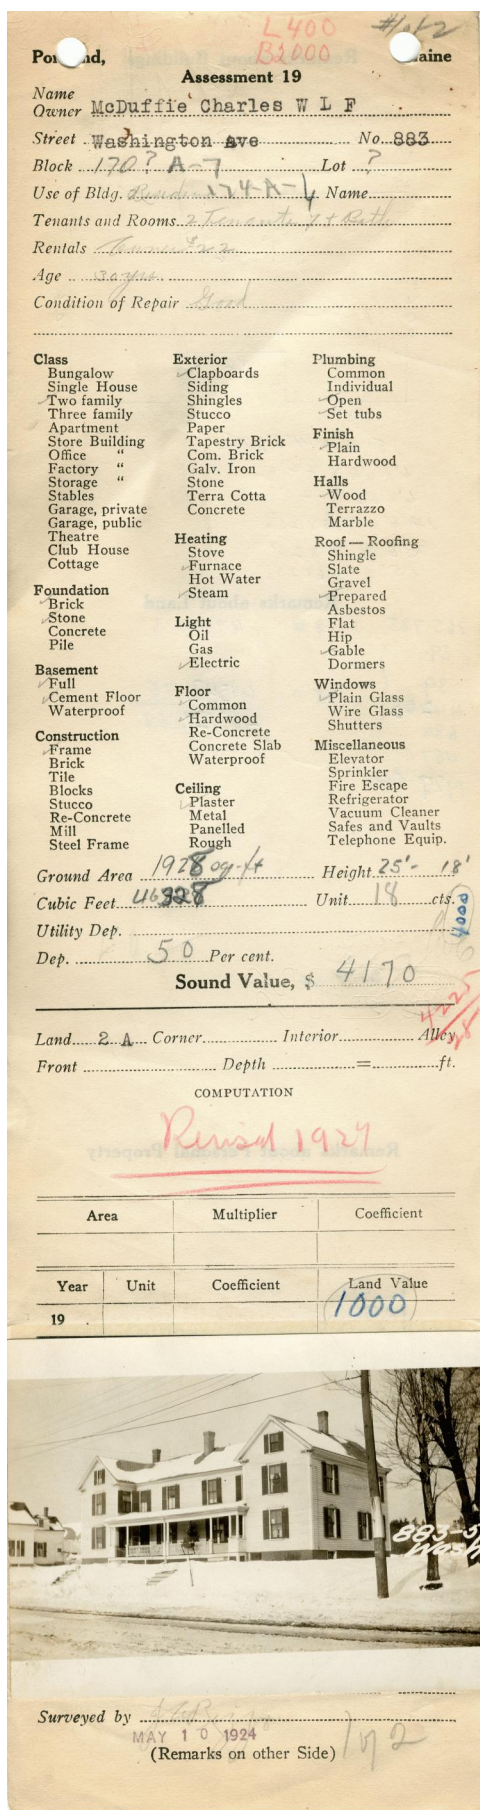 L400
#1 of 2
B2000
Portland, Maine
Assessment 19
Name
Owner McDuffie Charles W L F
Street Washington Ave No. 883
Block 170? A-7 Lot ?
Use of Bldg. 174-A-6 Name
Tenants and Rooms 2 Tenants 7 + Bath
Rentals Owner $22
Age 30 yrs.
Condition of Repair Good
Class
Bungalow
Single House
Two family
Three family
Apartment
Store Building
Office "
Factory "
Storage "
Stables
Garage, private
Garage, public
Theatre
Club House
Cottage
Foundation
Brick
Stone
Concrete
Pile
Basement
Full
Cement Floor
Waterproof
Construction
Frame
Brick
Tile
Blocks
Stucco
Re-Concrete
Mill
Steel Frame
Exterior
Clapboards
Siding
Shingles
Stucco
Paper
Tapestry Brick
Com. Brick
Galv. Iron
Stone
Terra Cotta
Concrete
Heating
Stove
Furnace
Hot Water
Steam
Light
Oil
Gas
Electric
Floor
Common
Hardwood
Re-Concrete
Concrete Slab
Waterproof
Ceiling
Plaster
Metal
Panelled
Rough
Plumbing
Common
Individual
Open
Set tubs
Finish
Plain
Hardwood
Halls
Wood
Terrazzo
Marble
Roof — Roofing
Shingle
Slate
Gravel
Prepared
Asbestos
Flat
Hip
Gable
Dormers
Windows
Plain Glass
Wire Glass
Shutters
Miscellaneous
Elevator
Sprinkler
Fire Escape
Refrigerator
Vacuum Cleaner
Safes and Vaults
Telephone Equip.
Ground Area 1928 sq-ft Height 25'- 18'
Cubic Feet 46328 Unit 18 cts.
4000
Utility Dep.
Dep. 50 Per cent.
Sound Value, $ 4170
4225
Land 2 A Corner Interior Alley
Front Depth = ft.
COMPUTATION
Revised 1927
Area Multiplier Coefficient
Year Unit Coefficient Land Value
19 1000
883-5
Wash
Surveyed by
MAY 10 1924
(Remarks on other Side) 1 of 2